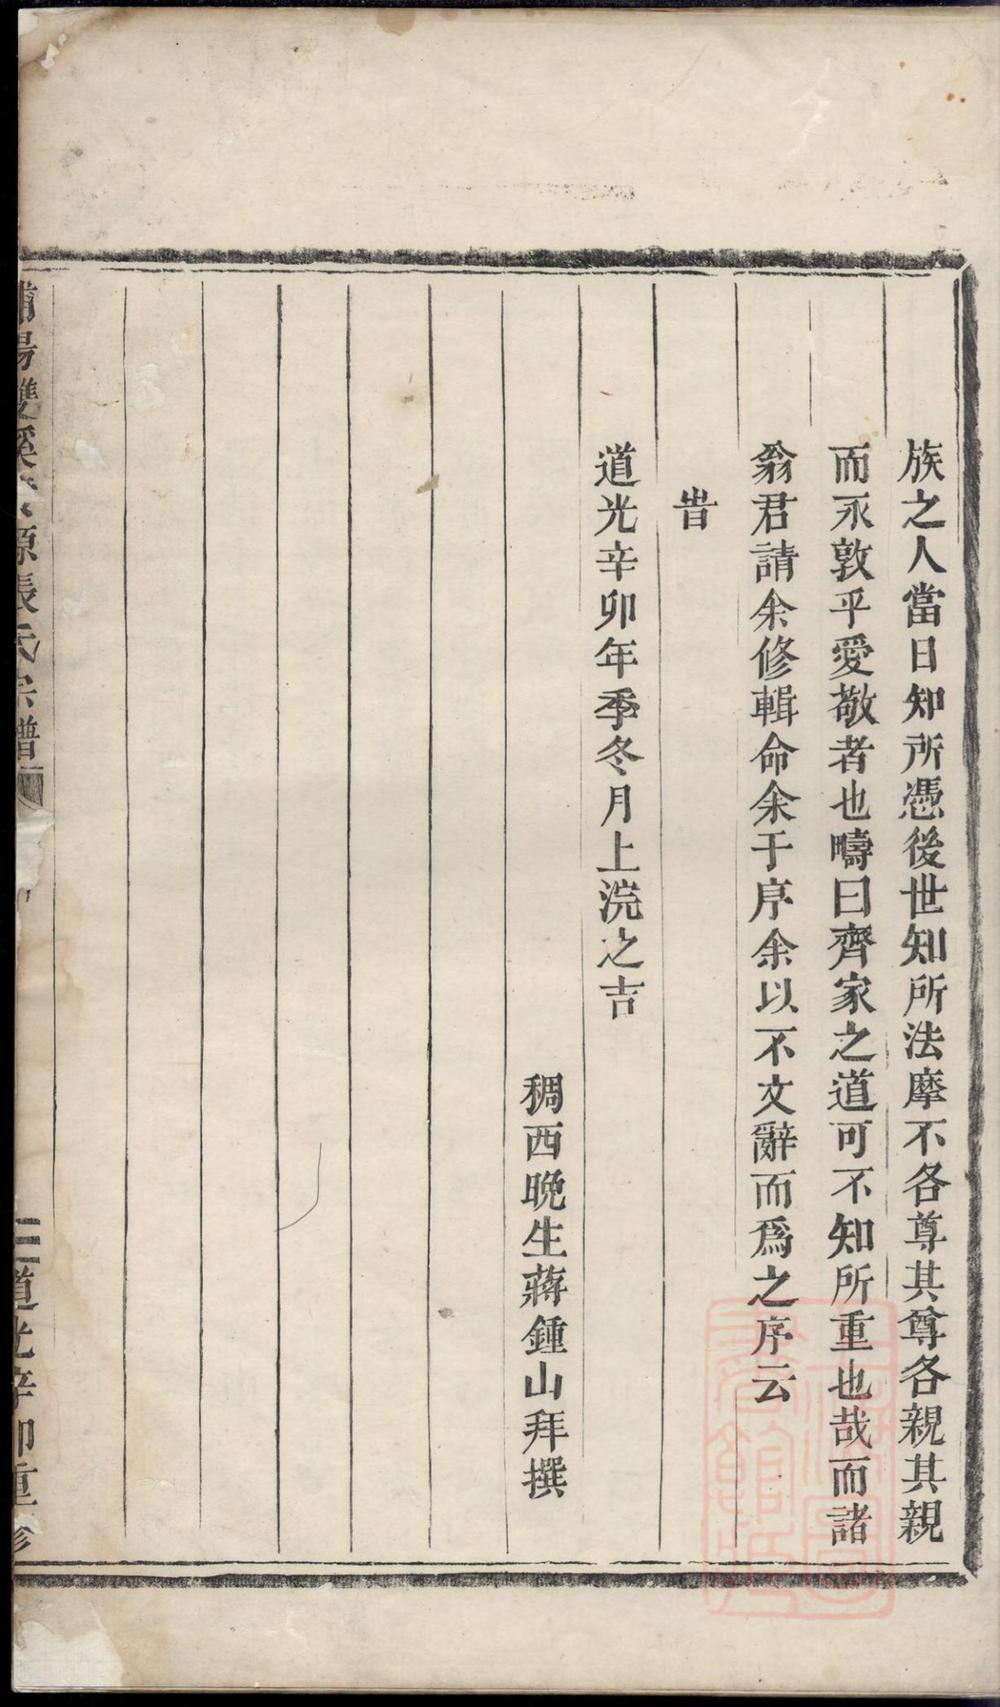 族之人當日知所憑後世知所法靡不各尊其尊各親其親
而永敦乎愛敬者也疇曰齊家之道可不知所重也哉而諸
翁君請余修輯命余于序余以不文辭而爲之序云
旹
道光辛卯年季冬月上浣之吉
稠西晚生蔣鍾山拜撰
浦陽雙溪源張氏宗譜
三
道光辛卯重修